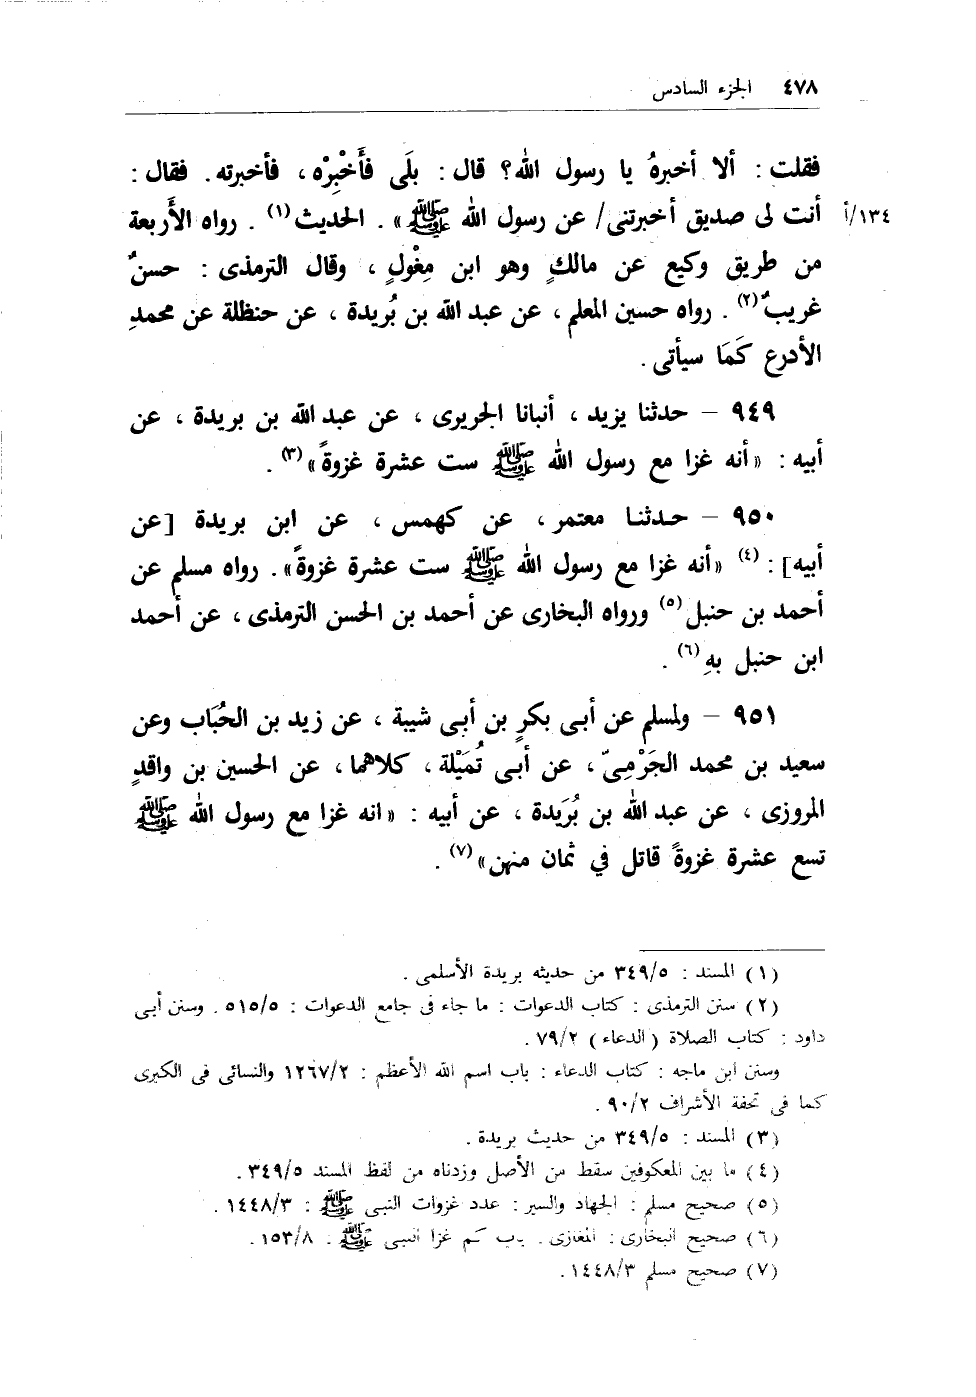 ٤٧٨ الجزء السادس
فقلت : ألا أخبرهُ يا رسول الله؟ قال : بلَى فأَخْبِرْه ، فأخبرته . فقال :
أنت لى صديق أخبرتنى/ عن رسول الله ﷺ» . الحديث(١) . رواه الأَربعة
١٣٤/أ
من طريق وكيع عن مالكٍ وهو ابن مِغْولٍ ، وقال الترمذى : حسنٌ
غريبٌ(٢) . رواه حسين المعلم ، عن عبد الله بن بُريدة ، عن حنظلة عن محمدِ
الأدرع كَمَا سيأتى .
٩٤٩ – حدثنا يزيد ، أنبانا الجريرى ، عن عبد الله بن بريدة ، عن
أبيه : «أنه غزا مع رسول الله ﷺ ست عشرة غزوةً»(٣) .
٩٥٠ – حدثنا معتمر ، عن كهمس ، عن ابن بريدة [عن
أبيه] :(٤) «أنه غزا مع رسول الله ﷺ ست عشرة غزوةً» . رواه مسلم عن
أحمد بن حنبل(٥) ورواه البخارى عن أحمد بن الحسن الترمذى ، عن أحمد
ابن حنبل بهِ(٦) .
٩٥١ – ولمسلم عن أبى بكرٍ بن أبى شيبة ، عن زيد بن الحُبَاب وعن
سعيد بن محمد الجَرْمِىّ ، عن أبى تُمَيْلة ، كلاهما ، عن الحسين بن واقدٍ
المروزى ، عن عبد الله بن بُرَيدة ، عن أبيه : «انه غزا مع رسول الله ﷺ
تسع عشرة غزوةً قاتل في ثمان منهن»(٧) .
(١) المسند : ٣٤٩/٥ من حديثه بريدة الأسلمى .
(٢) سنن الترمذى : كتاب الدعوات : ما جاء فى جامع الدعوات : ٥١٥/٥ . وسنن أبى
داود : كتاب الصلاة (الدعاء) ٧٩/٢ .
وسنن ابن ماجه : كتاب الدعاء : باب اسم الله الأعظم : ١٢٦٧/٢ والنسائى فى الكبرى
كما فى تحفة الأشراف ٩٠/٢ .
(٣) المسند : ٣٤٩/٥ من حديث بريدة .
(٤) ما بين المعكوفين سقط من الأصل وزدناه من لفظ المسند ٣٤٩/٥ .
(٥) صحيح مسلم : الجهاد والسير : عدد غزوات النبى ﷺ : ١٤٤٨/٣ .
(٦) صحيح البخارى : المغازى . باب كم غزا النبى ﷺ . ١٥٣/٨ .
(٧) صحيح مسلم ١٤٤٨/٣ .